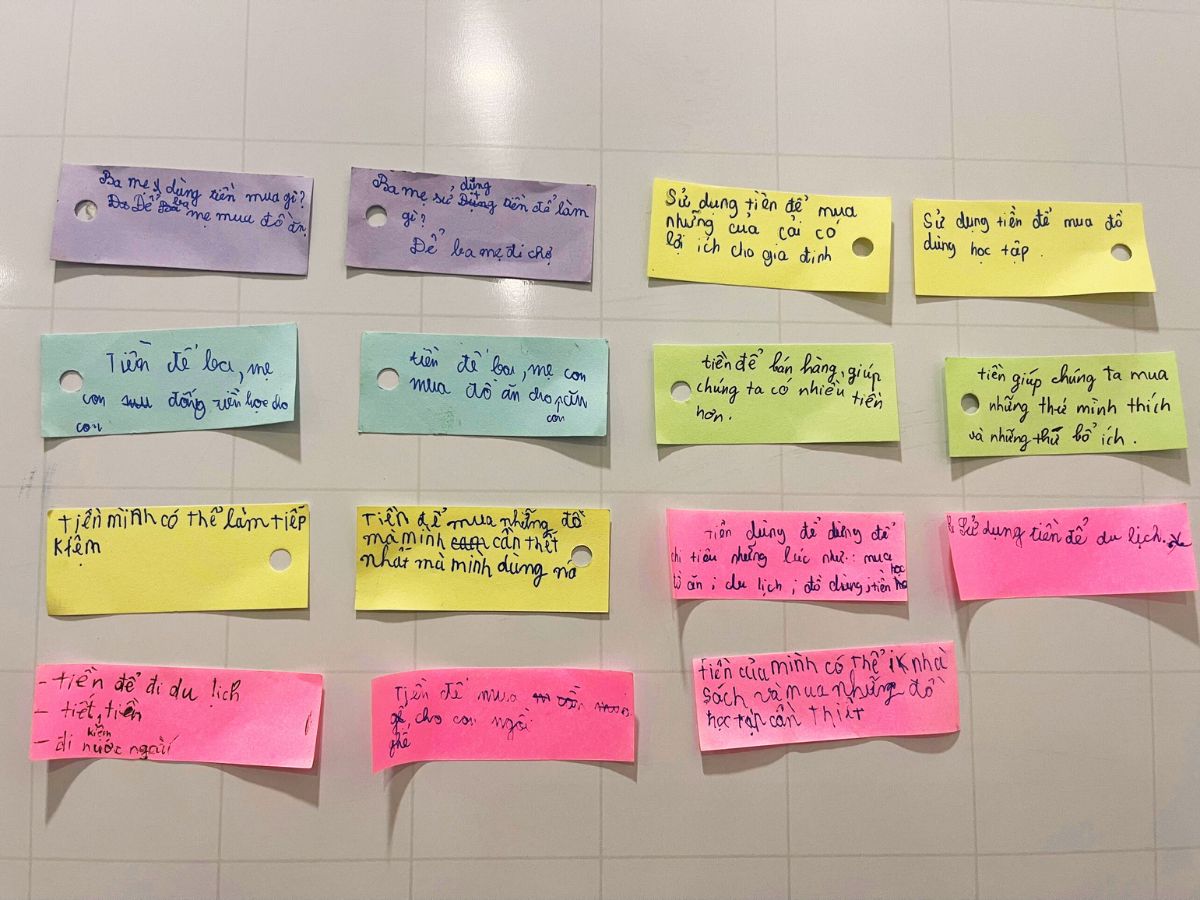 Ba mẹ dùng tiền mua gì?
Để ba mẹ mua đồ ăn
Ba mẹ sử dụng tiền để làm
gì?
Để ba mẹ đi chợ
Sử dụng tiền để mua
những của cải có
lợi ích cho gia đình
Sử dụng tiền để mua đồ
dùng học tập.
Tiền để ba, mẹ
con đóng tiền học cho
con
tiền để ba, mẹ con
mua đồ ăn cho
con
tiền để bán hàng, giúp
chúng ta có nhiều tiền
hơn.
tiền giúp chúng ta mua
những thứ mình thích
và những thứ bổ ích.
tiền mình có thể làm tiếp
kiệm
Tiền để mua những đồ
mà mình cần thết
nhất mà mình dùng nó
Tiền dùng để dùng để
chi tiêu những lúc như: mua
đồ ăn; du lịch; đồ dùng; tiền học
Sử dụng tiền để du lịch.
- tiền để đi du lịch
- tiết, tiền
kiệm
- đi nước ngoài
Tiền để mua
gế, cho con ngồi
ghế
tiền của mình có thể nhà
sách và mua những đồ
học tập cần thiết